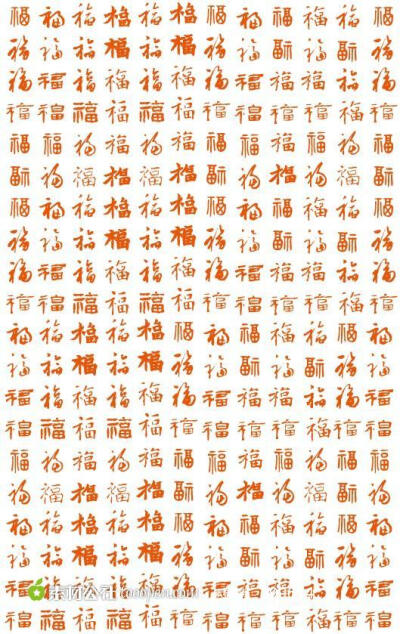 福福福福福福福福福福福福
福福福福福福福福福福福福
福福福福福福福福福福福福
福福福福福福福福福福福福
福福福福福福福福福福福福
福福福福福福福福福福福福
福福福福福福福福福福福福
福福福福福福福福福福福福
福福福福福福福福福福福福
福福福福福福福福福福福福
福福福福福福福福福福福福
福福福福福福福福福福福福
福福福福福福福福福福福福
福福福福福福福福福福福福
福福福福福福福福福福福福
福福福福福福福福福福福福
福福福福福福福福福福福福
福福福福福福福福福福福福
福福福福福福福福福福福福
素材公社
福福福福福福福福福福福福